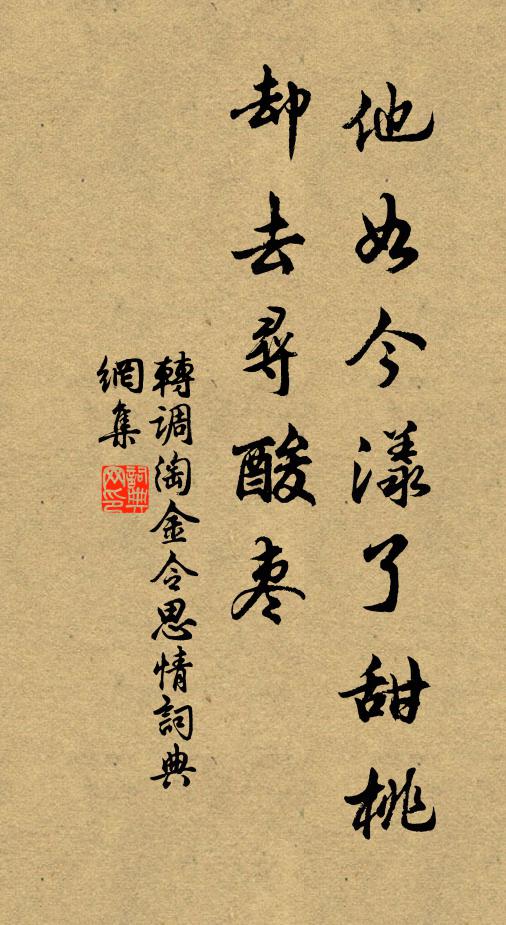 他如今漾了甜桃
却去尋酸枣
轉調淘金令思情詞典
網集
詞典
网印